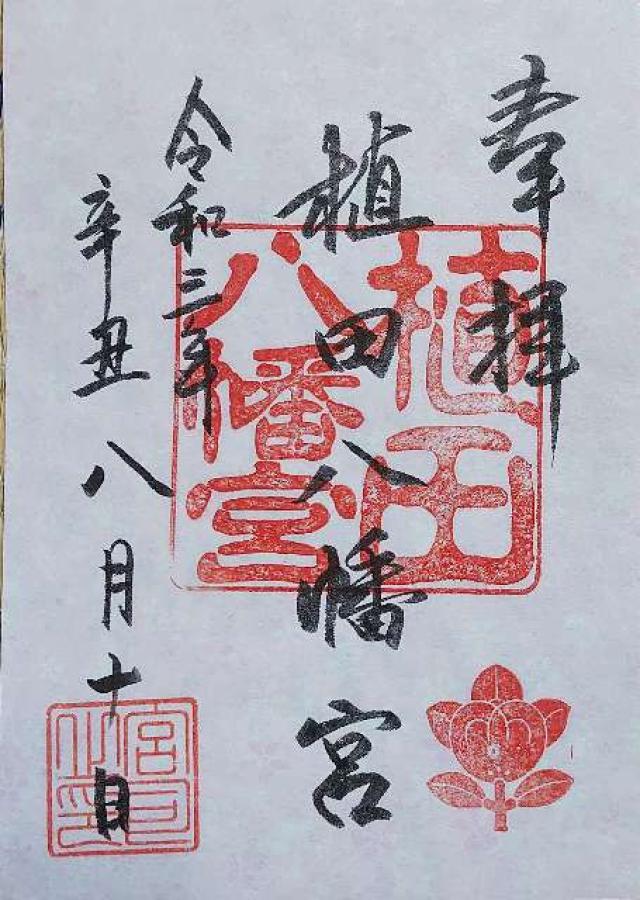 奉拝
植田八幡宮
令和三年
辛丑 八月十日
植田
八幡宮
宮司
之印